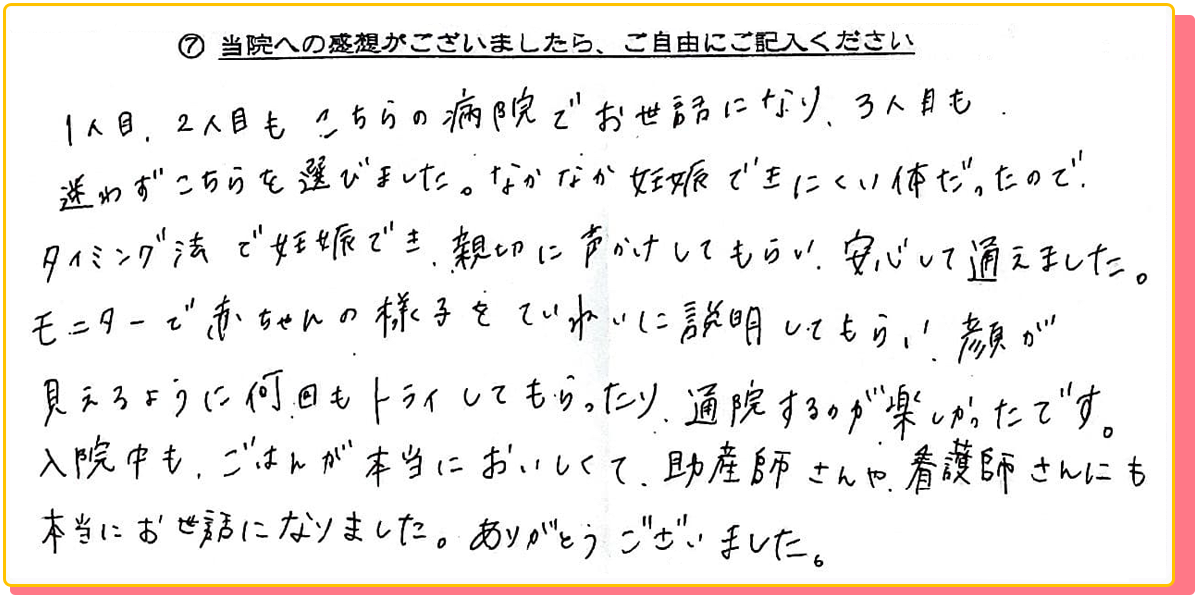 ⑦ 当院への感想がございましたら、ご自由にご記入ください
1人目、2人目もこちらの病院でお世話になり、3人目も
迷わずこちらを選びました。なかなか妊娠できにくい体だったので、
タイミング法で妊娠でき、親切に声かけしてもらい、安心して通えました。
モニターで赤ちゃんの様子をていねいに説明してもらい、顔が
見えるように何回もトライしてもらったり、通院するのが楽しかったです。
入院中も、ごはんが本当においしくて、助産師さんや、看護師さんにも
本当にお世話になりました。ありがとうございました。